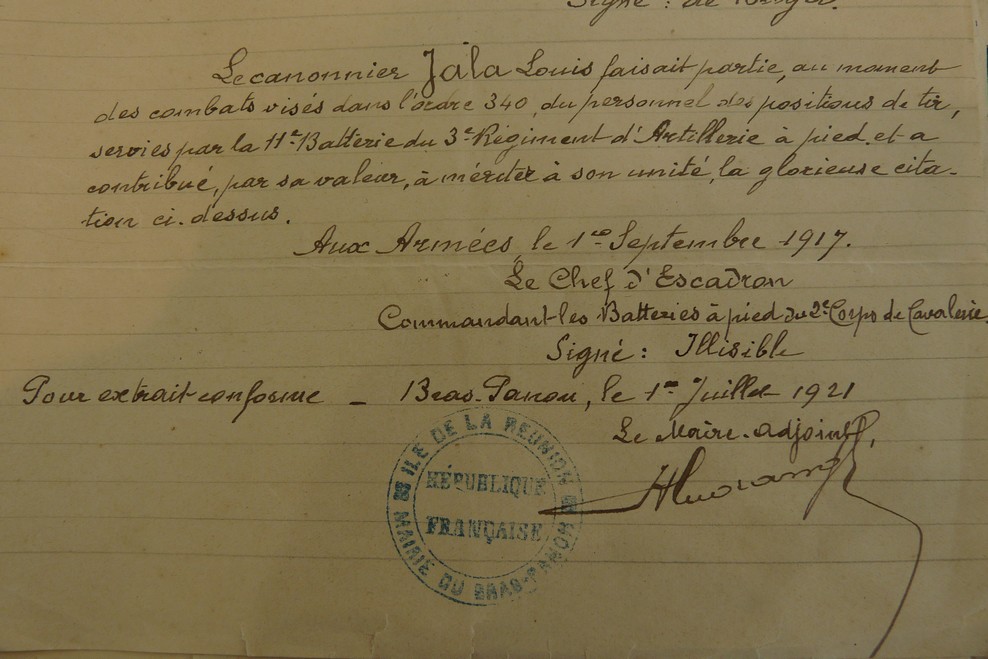 Signé : de
Le canonnier Jala Louis faisait partie, au moment
des combats visés dans l'ordre 340, du personnel des positions de tir,
servies par la 11e Batterie du 3e Régiment d'Artillerie à pied et a
contribué, par sa valeur, à mériter à son unité, la glorieuse cita-
tion ci-dessus.
Aux Armées, le 1er Septembre 1917.
Le Chef d'Escadron
Commandant les Batteries à pied du 2e Corps de Cavalerie
Signé : Illisible
Pour extrait conforme - Bras-Panon, le 1er Juillet 1921
Le Maire-adjoint,
ILE DE LA REUNION
RÉPUBLIQUE
FRANÇAISE
MAIRIE DU BRAS-PANON